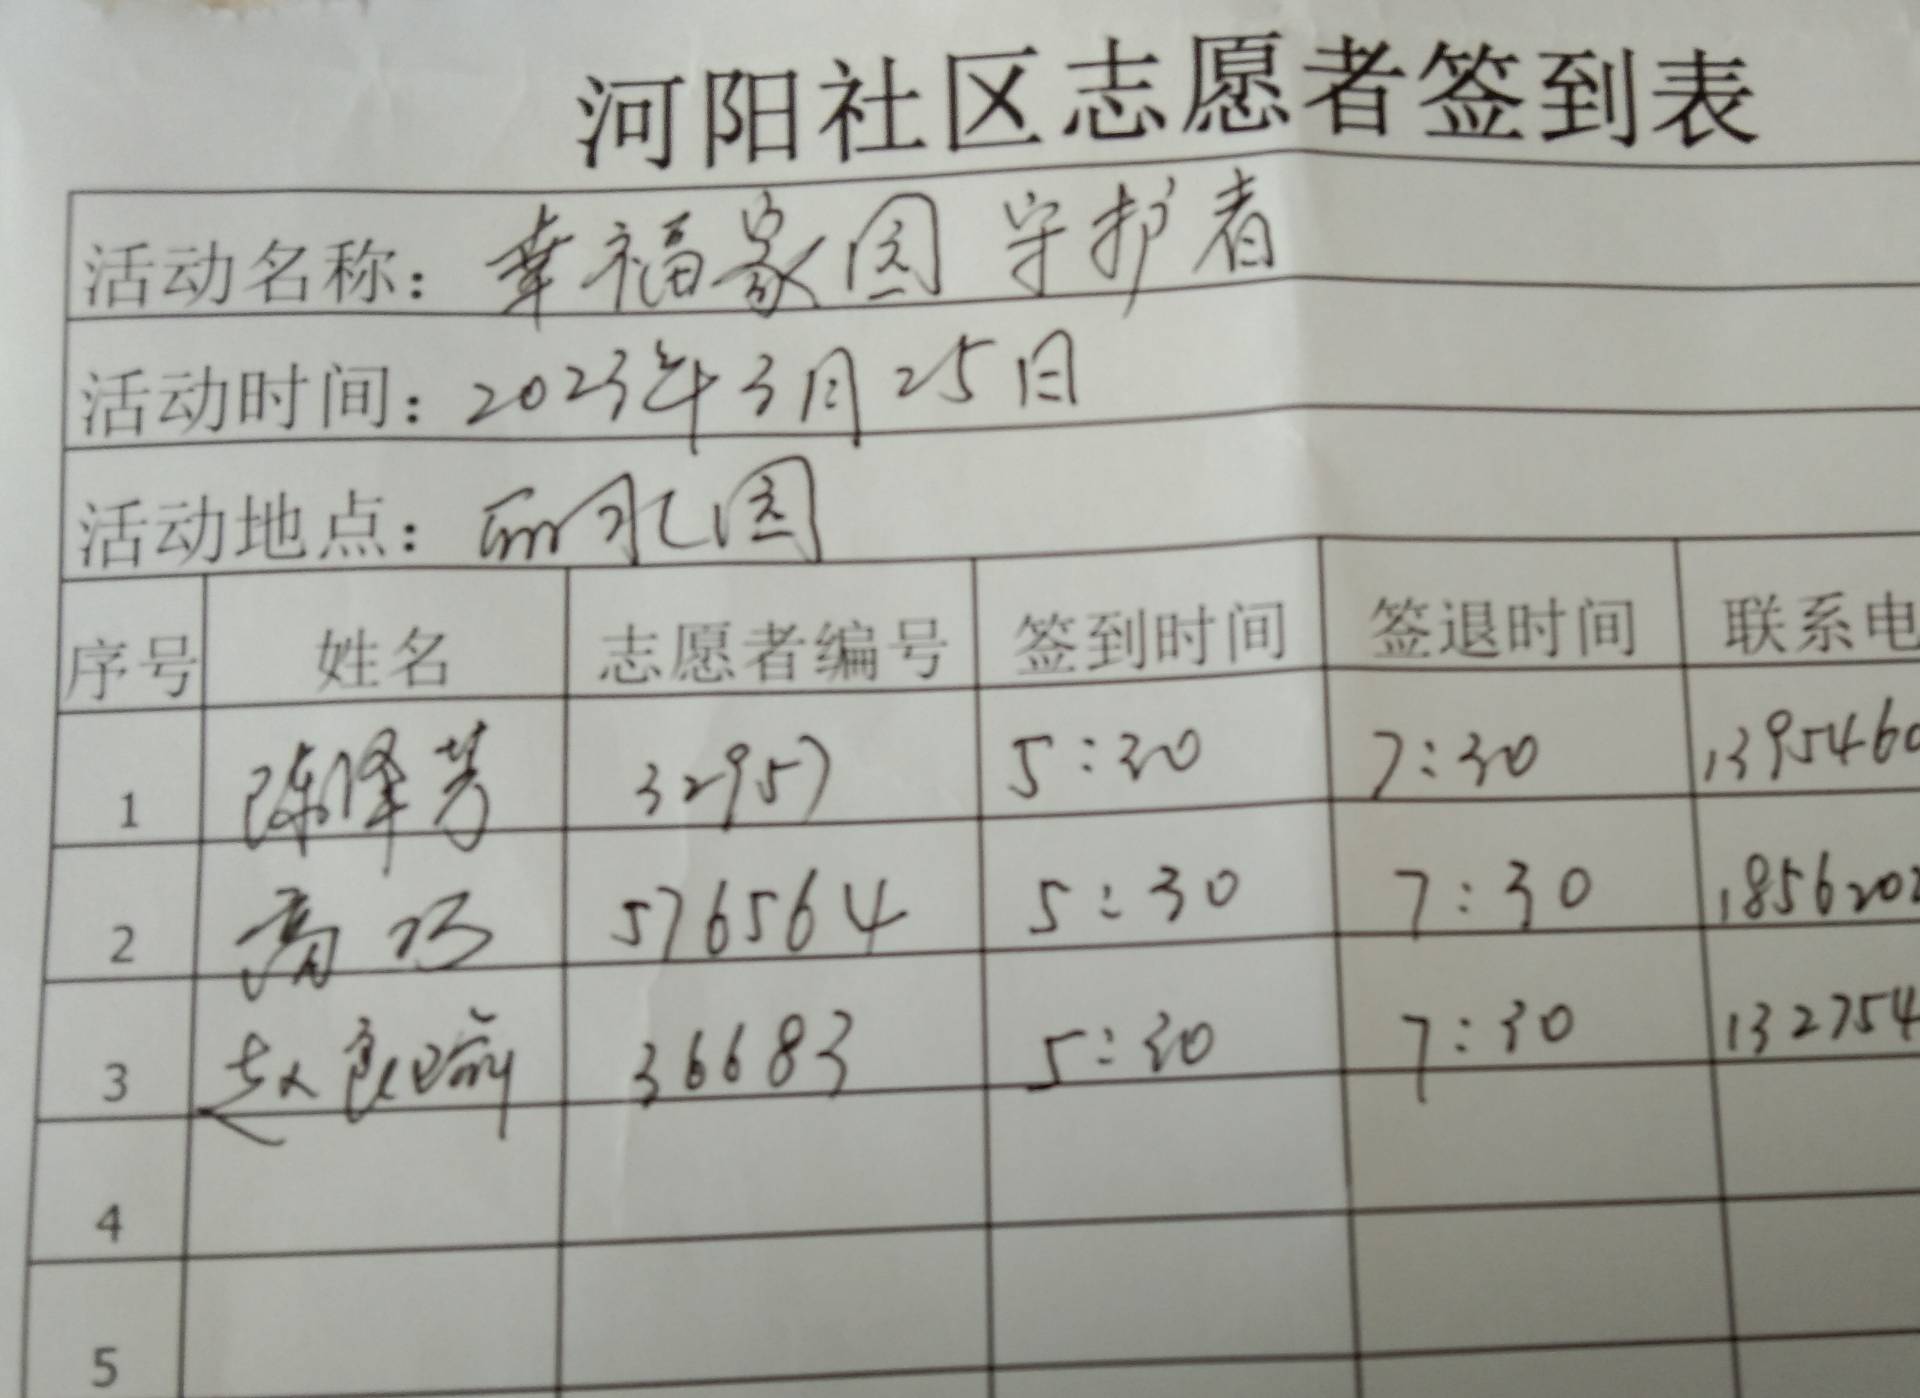 河阳社区志愿者签到表
活动名称：幸福家园守护者
活动时间：2023年3月25日
活动地点：丽水园
序号 姓名 志愿者编号 签到时间 签退时间 联系电
1 陈泽芳 32957 5:30 7:30 1395460
2 高巧 576564 5:30 7:30 1856202
3 赵良瑜 36683 5:30 7:30 132754
4
5